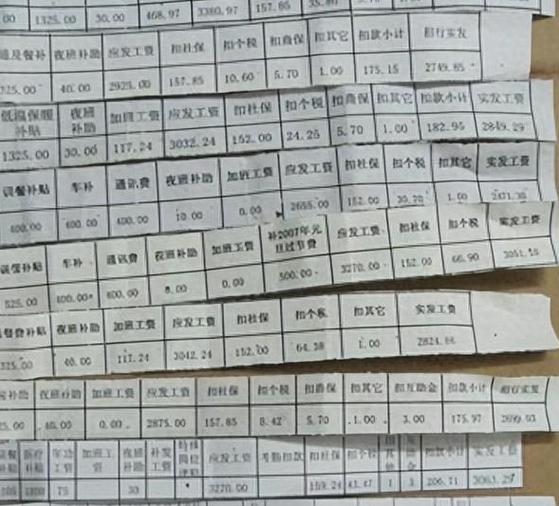 00 1325.00 30.00 468.97 3380.97 157.85
夜班补助 应发工资 扣社保 扣个税 扣商保 扣其它 扣款小计 招行实发
325.00 40.00 2925.00 157.85 10.60 5.70 1.00 175.15 2749.85
低温保暖补贴 夜班补助 加班工资 应发工资 扣社保 扣个税 扣商保 扣其它 扣款小计 实发工资
1325.00 30.00 117.24 3032.24 152.00 24.25 5.70 1.00 182.95 2849.29
误餐补贴 车补 通讯费 夜班补助 加班工资 应发工资 扣社保 扣个税 扣其它 实发工资
400.00 400.00 400.00 10.00 0.00 2655.00 152.00 1.00
误餐补贴 车补 通讯费 夜班补助 加班工资 补2007年元旦过节费 应发工资 扣社保 扣个税 实发工资
525.00 600.00 600.00 8.00 0.00 500.00 3270.00 152.00 66.90 3051.15
餐费补贴 夜班补助 加班工资 应发工资 扣社保 扣个税 扣其它 实发工资
325.00 40.00 117.24 3042.24 152.00 64.38 1.00
补助 夜班补助 加班工资 应发工资 扣社保 扣个税 扣商保 扣其它 扣互助金 扣款小计 招行实发
25.00 40.00 0.00 2875.00 157.85 8.42 5.70 1.00 3.00 175.97 2699.03
加班工资 夜班补助 补发工资 应发工资 考勤扣款 扣社保 扣个税 扣款小计 实发工资
75 30 3270.00 159.24 43.47 1 3 206.71 3063.29